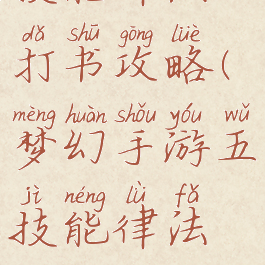 dǎ shū gōng lüè
打书攻略(
mèng huàn shǒu yóu wǔ
梦幻手游五
jì néng lǜ fǎ
技能律法